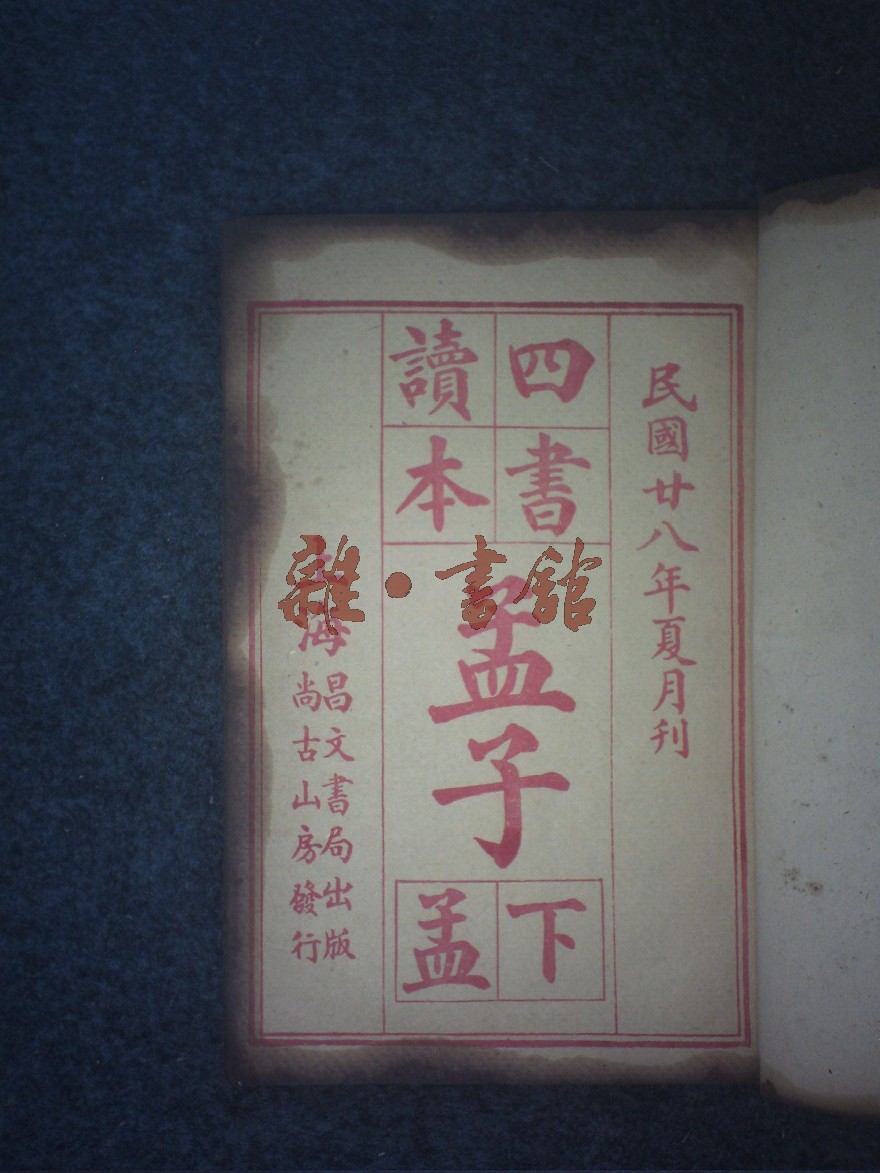 民國廿八年夏月刊
四書
讀本
孟子
下
孟
海
昌文書局出版
尚古山房發行
雜·書館